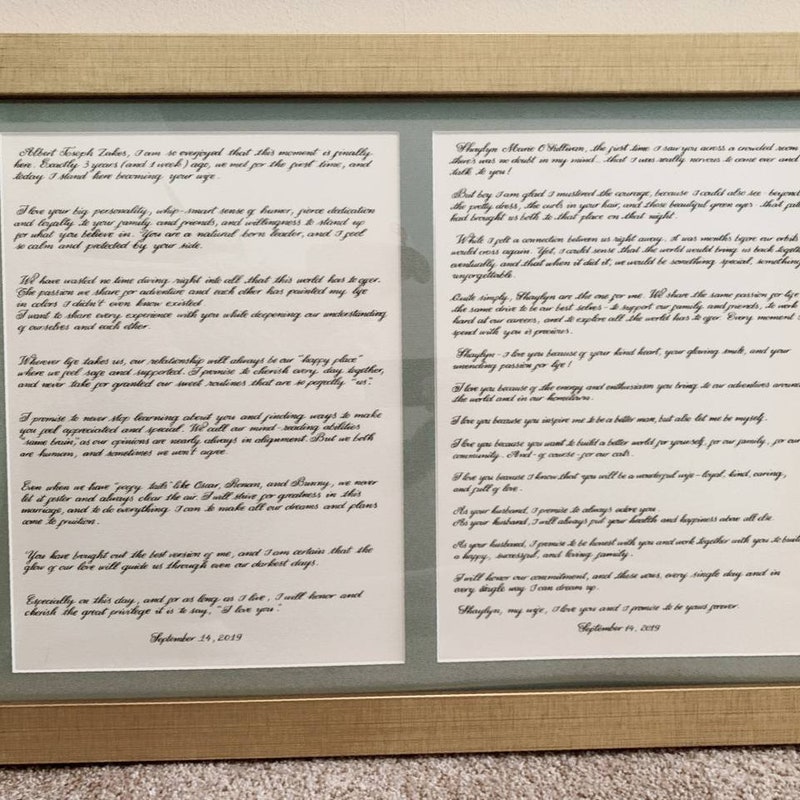 Albert Joseph Zakes, I am so overjoyed that this moment is finally
here. Exactly 3 years (and 1 week) ago, we met for the first time, and
today I stand here becoming your wife.
I love your big personality, whip-smart sense of humor, fierce dedication
and loyalty to your family and friends, and willingness to stand up
for what you believe in. You are a natural born leader, and I feel
so calm and protected by your side.
We have wasted no time diving right into all that this world has to offer.
The passion we share for adventure and each other has painted my life
in colors I didn't even know existed.
I want to share every experience with you while deepening our understanding
of ourselves and each other.
Wherever life takes us, our relationship will always be our "happy place"
where we feel safe and supported. I promise to cherish every day together,
and never take for granted our sweet routines that are so perfectly "us".
I promise to never stop learning about you and finding ways to make
you feel appreciated and special. We call our mind-reading abilities
"same brain" as our opinions are nearly always in alignment. But we both
are human, and sometimes we won't agree.
Even when we have "poofy tails" like Oscar, Ronan, and Bunny, we never
let it fester and always clear the air. I will strive for greatness in this
marriage, and to do everything I can to make all our dreams and plans
come to fruition.
You have bought out the best version of me, and I am certain that the
glow of our love will guide us through even our darkest days.
Especially on this day, and for as long as I live, I will honor and
cherish the great privilege it is to say, "I love you".
September 14, 2019
Shaylyn Marie O'Sullivan, the first time I saw you across a crowded room
there's was no doubt in my mind... that I was really nervous to come over and
talk to you!
But boy I am glad I mustered the courage, because I could also see - beyond
the pretty dress, the curls in your hair, and those beautiful green eyes - that fate
had brought us both to that place on that night.
While I felt a connection between us right away, it was months before our orbits
would cross again. Yet, I could sense that the world would bring us back together
eventually, and that when it did it, we would be something special, something
unforgettable.
Quite simply, Shaylyn are the one for me. We share the same passion for life
the same drive to be our best selves - to support our family and friends, to work
hard at our careers, and to explore all the world has to offer. Every moment I
spend with you is precious.
Shaylyn - I love you because of your kind heart, your glowing smile, and your
unending passion for life!
I love you because of the energy and enthusiasm you bring to our adventures around
the world and in our hometown.
I love you because you inspire me to be a better man, but also let me be myself.
I love you because you want to build a better world for yourself, for our family, for our
community. And - of course - for our cats.
I love you because I know that you will be a wonderful wife - loyal, kind, caring,
and full of love.
As your husband, I promise to always adore you.
As your husband, I will always put your health and happiness above all else.
As your husband, I promise to be honest with you and work together with you to build
a happy, successful, and loving family.
I will honor our commitment, and these vows, every single day and in
every single way I can dream up.
Shaylyn, my wife, I love you and I promise to be yours forever.
September 14, 2019